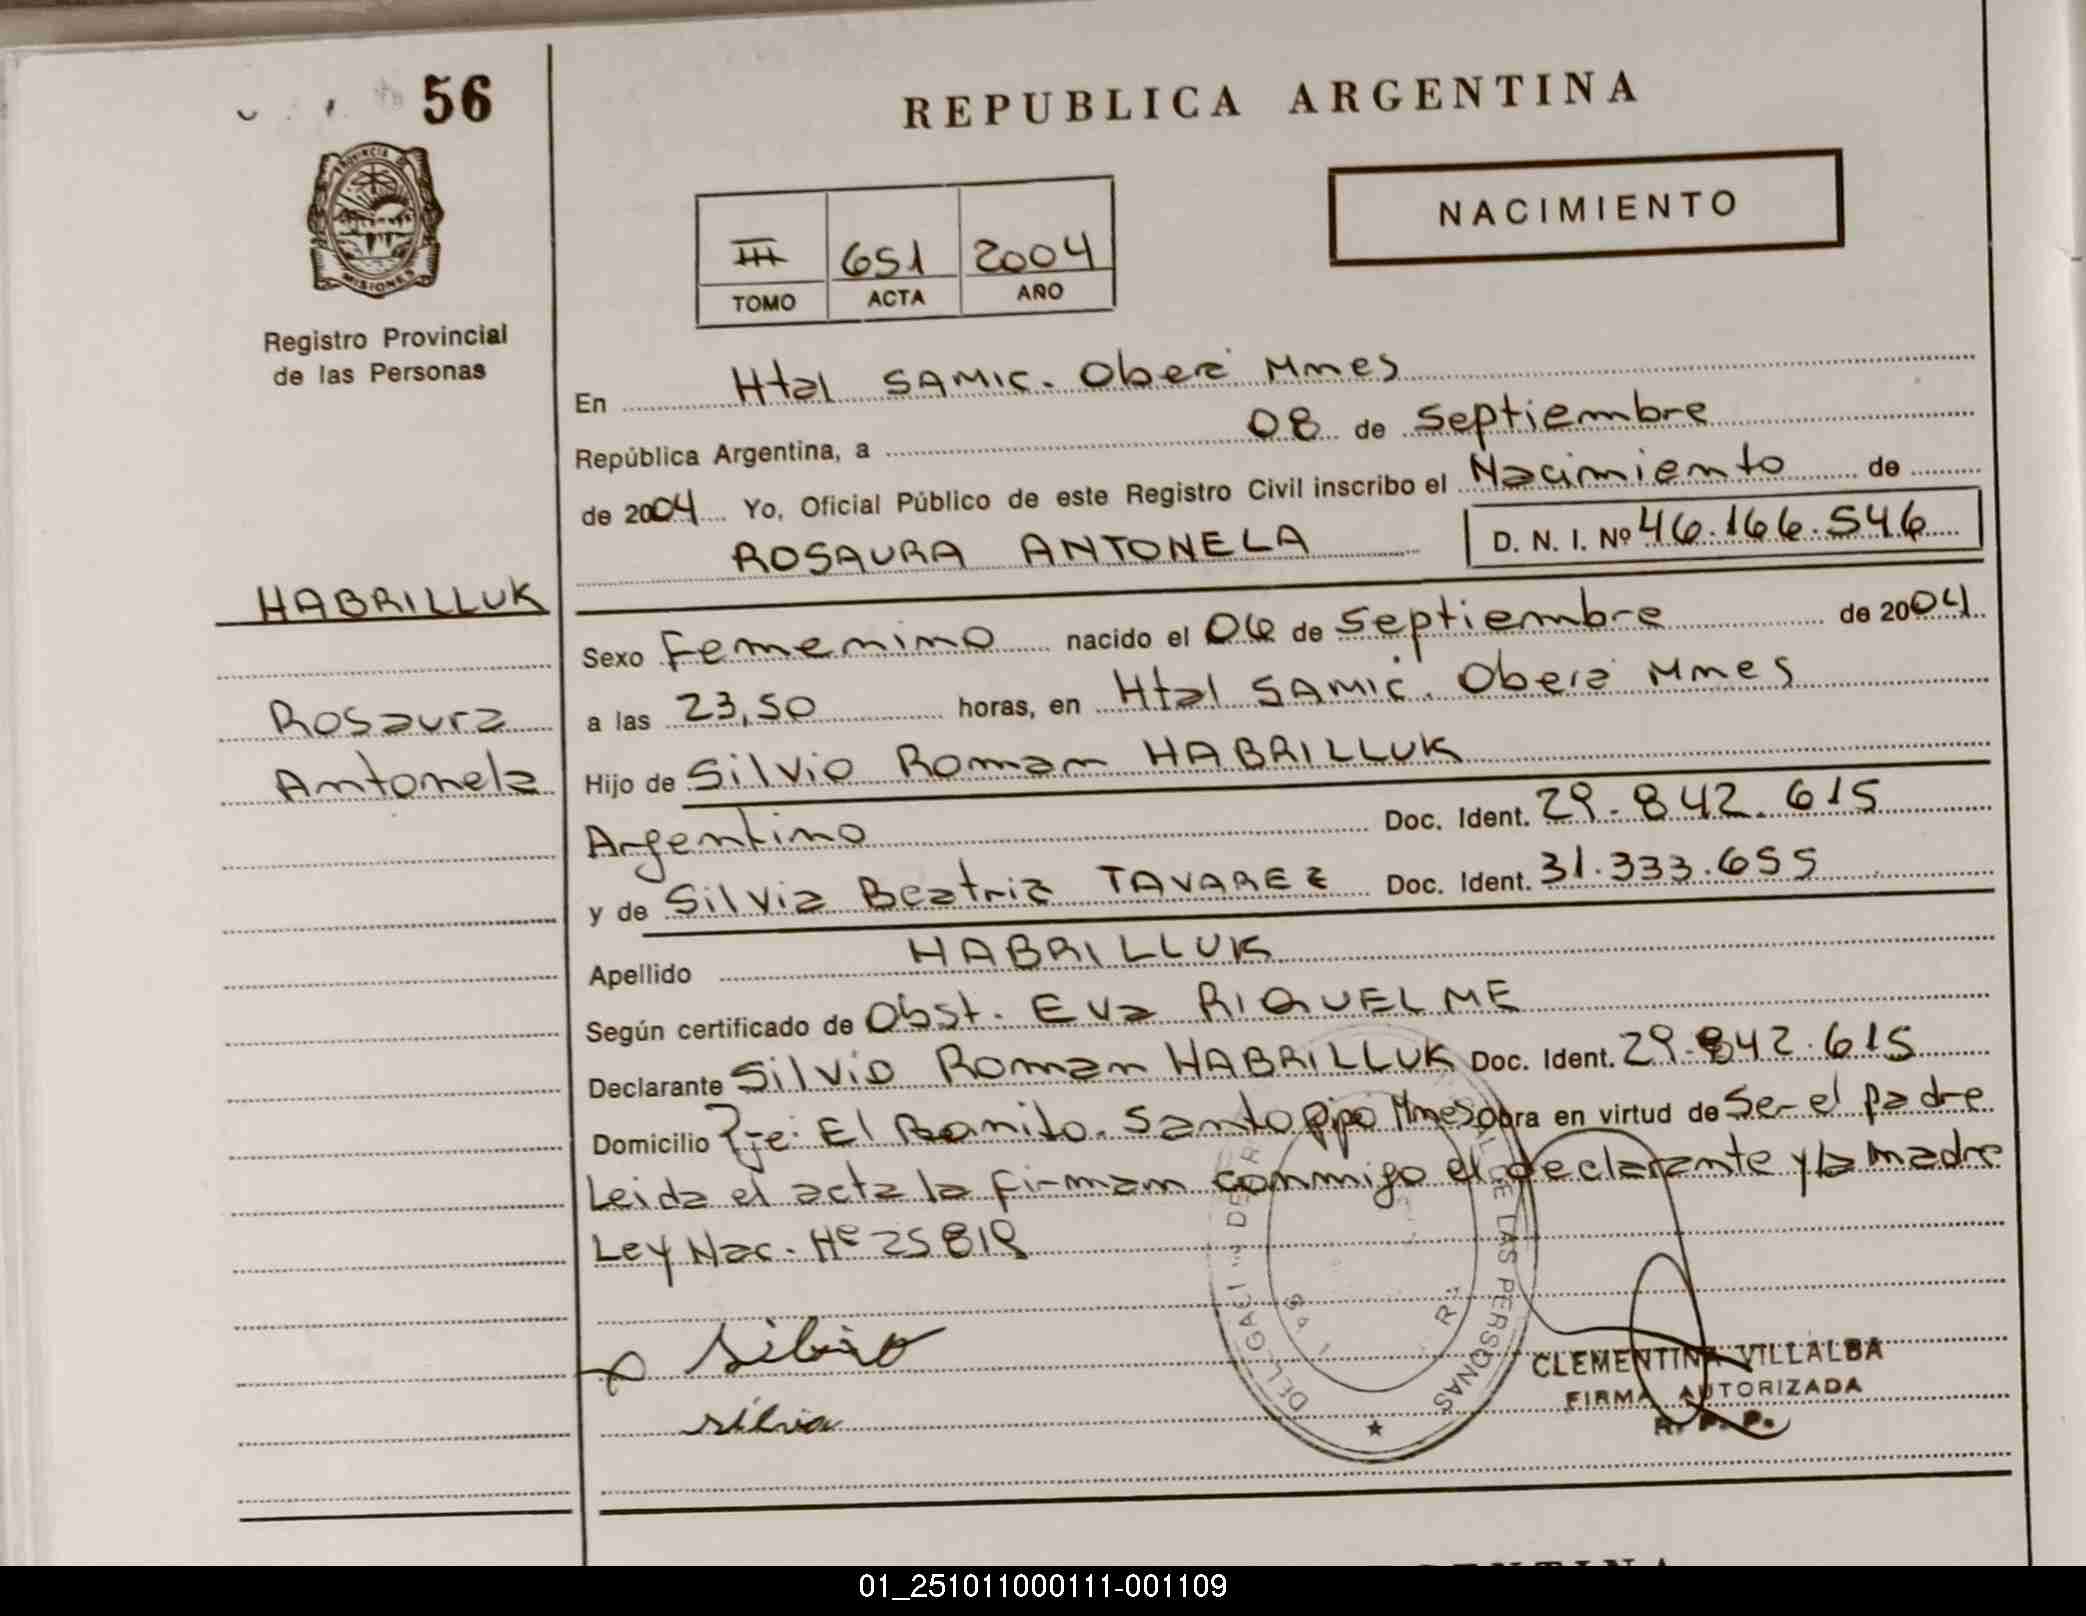 56
REPUBLICA ARGENTINA
NACIMIENTO
PROVINCIA DE
MISIONES
III 651 2004
TOMO ACTA AÑO
Registro Provincial
de las Personas
En Htal SAMIC. Oberá Mnes
República Argentina, a 08 de Septiembre
de 2004 Yo, Oficial Público de este Registro Civil inscribo el Nacimiento de
ROSAURA ANTONELA D. N. I. Nº 46.166.546
HABRILLUK
Rosaura
Antonela
Sexo Femenino nacido el 06 de Septiembre de 2004
a las 23,50 horas, en Htal SAMIC. Oberá Mnes
Hijo de Silvio Roman HABRILLUK
Argentino Doc. Ident. 29.842.615
y de Silvia Beatriz TAVAREZ Doc. Ident. 31.333.655
Apellido HABRILLUK
Según certificado de Obst. Eva RIQUELME
Declarante Silvio Roman HABRILLUK Doc. Ident. 29.842.615
Domicilio Pje: El Bonito. Santo Mnes obra en virtud de Ser el padre
Leida el acta la firman conmigo el declarante y la madre
Ley Nac. Nº 25819
Silvio
silvia
DE LAS PERSONAS
CLEMENTINA VILLALBA
FIRMA AUTORIZADA
R. P. P.
01_251011000111-001109